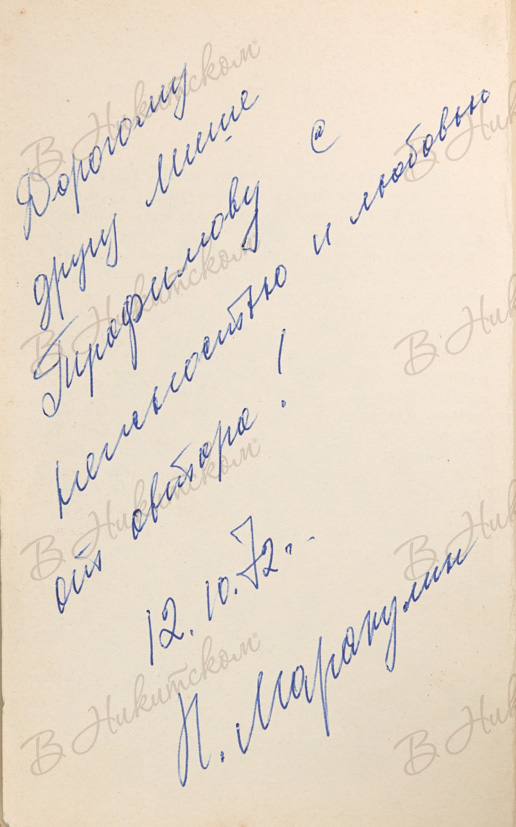 Дорогому
другу Мише
Трофимову с
нежностью и любовью
от автора!
12.10.72 г.
П. Маракулин
В. Никитском
В. Никитском
В. Никитском
В. Никитском